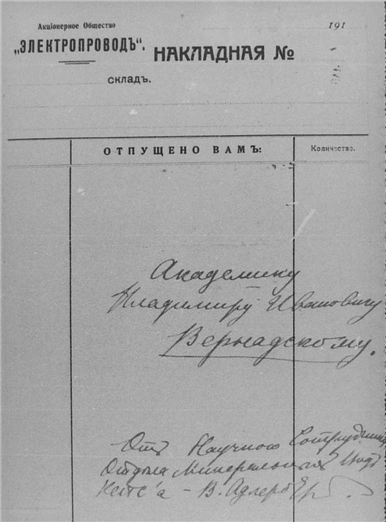 Акціонерное Общество
„ЭЛЕКТРОПРОВОДЪ“.
НАКЛАДНАЯ №
191
СКЛАДЪ.
ОТПУЩЕНО ВАМЪ:
Количество.
Академику
Владимиру Ивановичу
Вернадскому.
Отъ Научного Сотрудника
Отдѣла Минеральныхъ
В. Адлерб